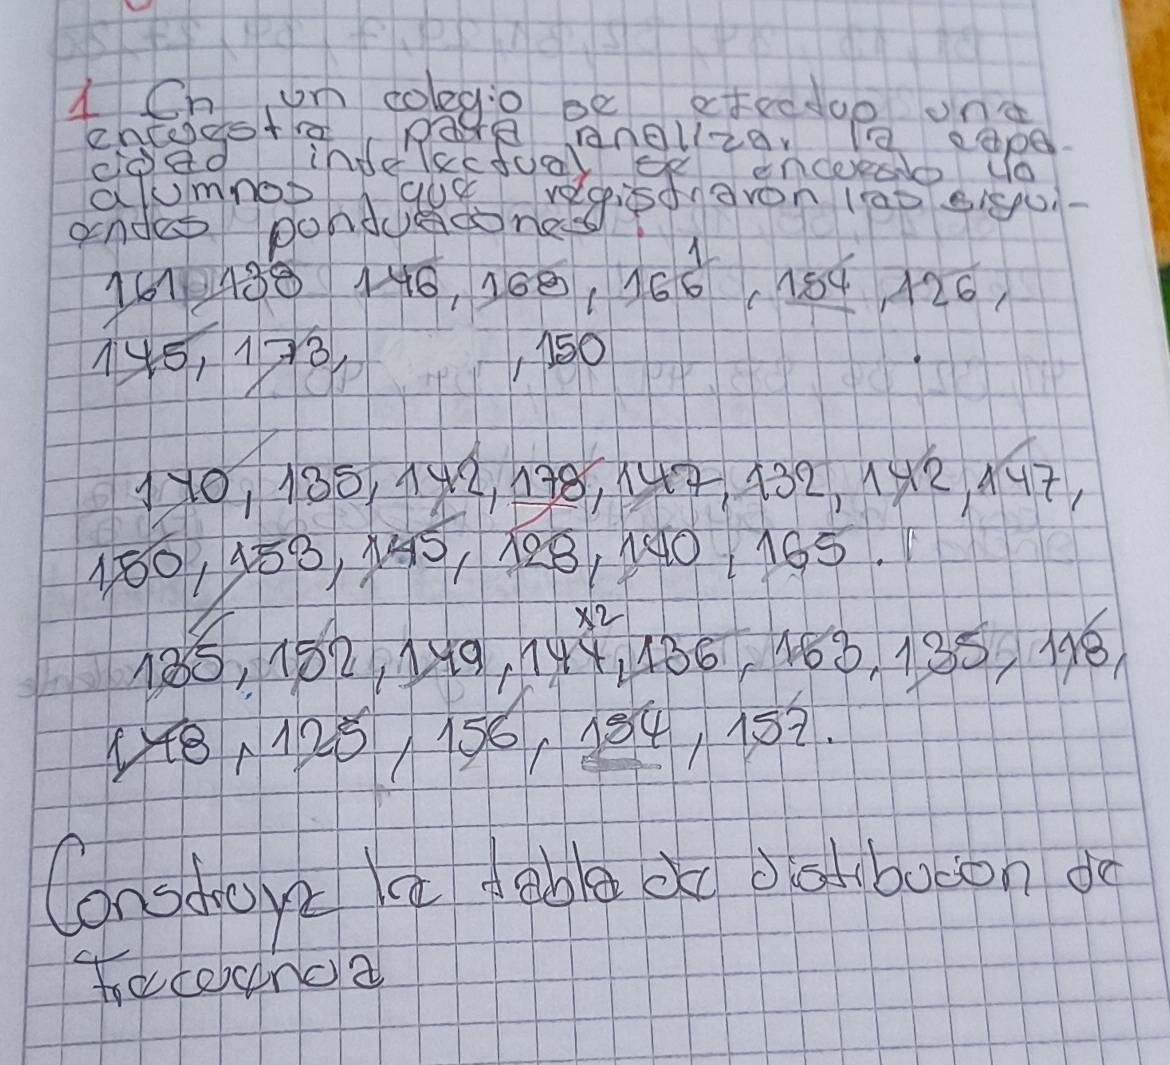 1 En un colegio se efectuo una
encuestra para analizar la capa-
cidad intelectual se encuesto 40
alumnos que registraron las sigui-
entes pontuaciones:
161, 138 146, 168, 166, 154, 126,
1
145, 173, , 150
140, 135, 142, 178, 147, 132, 142, 147,
150, 153, 145, 128, 140, 165.
x2
135, 152, 149, 144, 136, 163, 135, 118,
148, 125, 156, 154, 152.
Construye la tabla de distibucion de
frecuencia